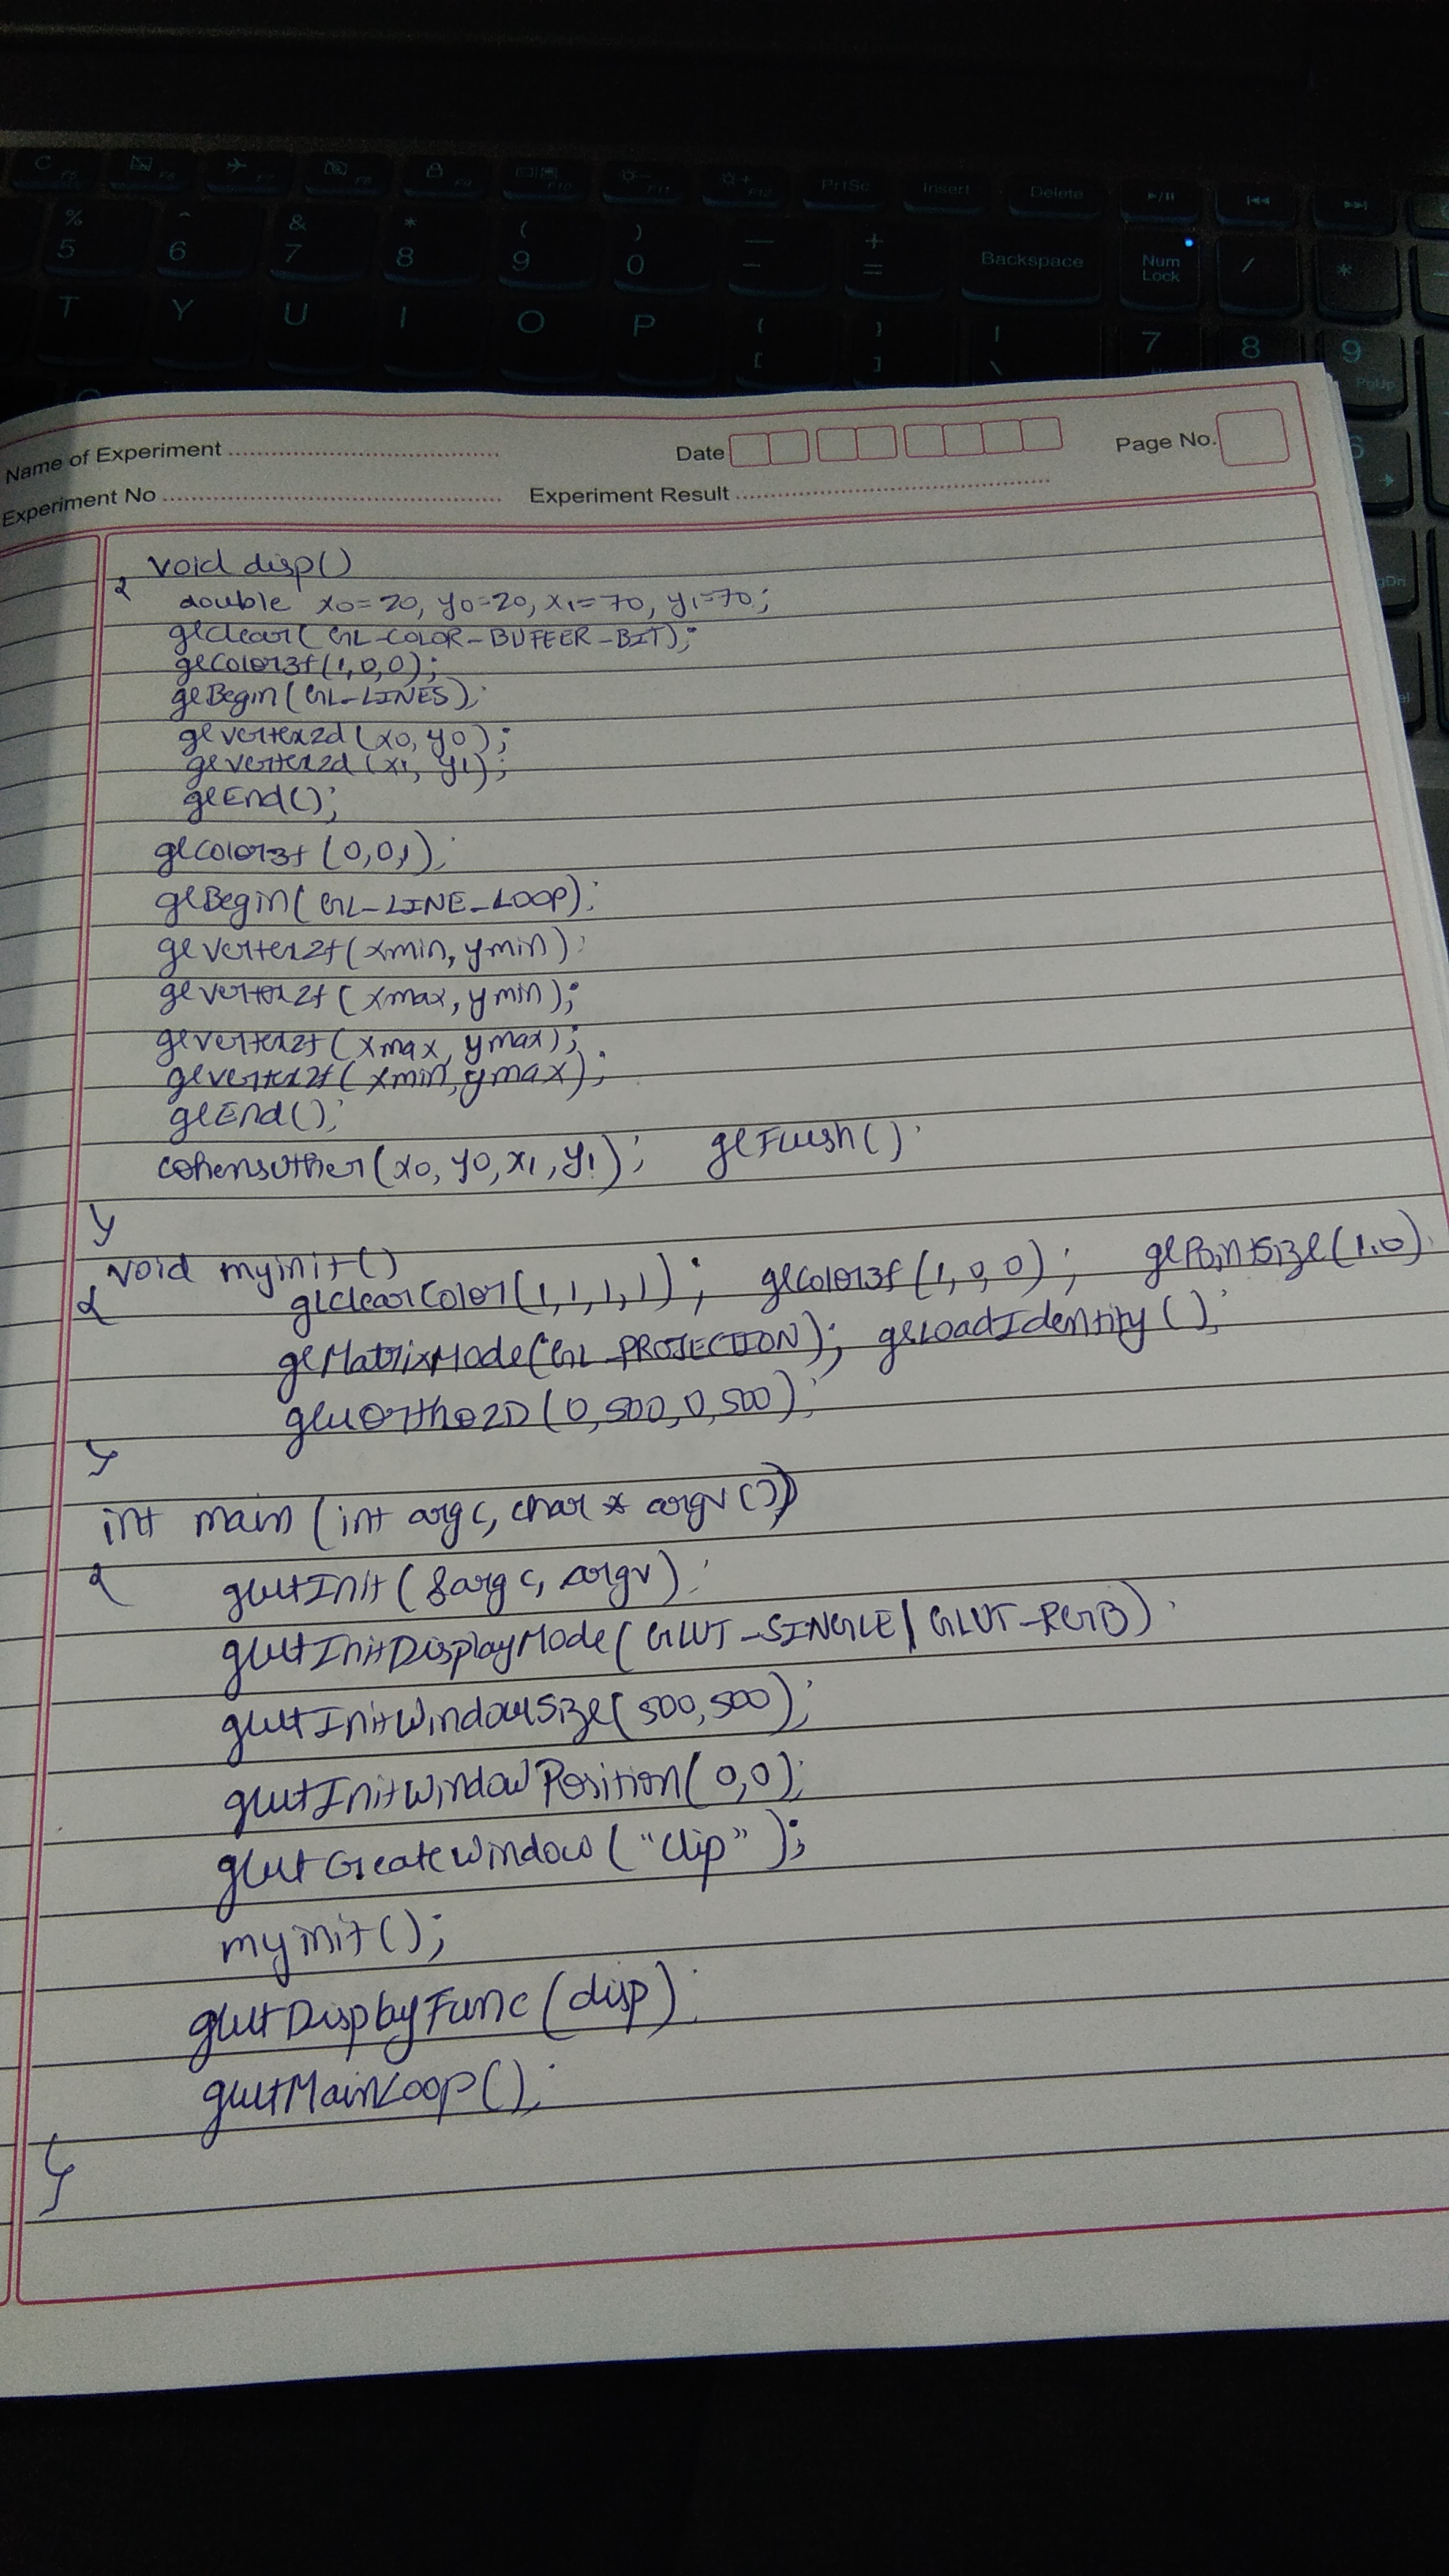 C F5 F6 F7 F8 F9 F10 F11 F12 PrtSc Insert Delete
% 5 ^ 6 & 7 * 8 ( 9 ) 0 — – + = Backspace Num Lock / *
T Y U I O P { [ } ] | \ 7 8 9 PgUp
Name of Experiment Date Page No.
Experiment No Experiment Result
void disp()
{
double x0=20, y0=20, x1=70, y1=70;
glclear(GL-COLOR-BUFFER-BIT);
glColor3f(1,0,0);
glBegin(GL-LINES);
glvertex2d(x0, y0);
glvertex2d(x1, y1);
glEnd();
glColor3f(0,0,1);
glBegin(GL-LINE-LOOP);
glvertex2f(xmin, ymin);
glvertex2f(xmax, ymin);
glvertex2f(xmax, ymax);
glvertex2f(xmin, ymax);
glEnd();
cohensuther(x0, y0, x1, y1); glFlush();
}
void myinit()
{ glclearColor(1,1,1,1); glcolor3f(1,0,0); glPointSize(1.0);
glMatrixMode(GL_PROJECTION); glLoadIdentity();
gluOrtho2D(0,500,0,500);
}
int main(int argc, char * argv[])
{ glutInit(&argc, argv);
glutInitDisplayMode(GLUT-SINGLE | GLUT-RGB);
glutInitWindowSize(500,500);
glutInitWindowPosition(0,0);
glutCreateWindow("clip");
myinit();
glutDisplayFunc(disp);
glutMainLoop();
}